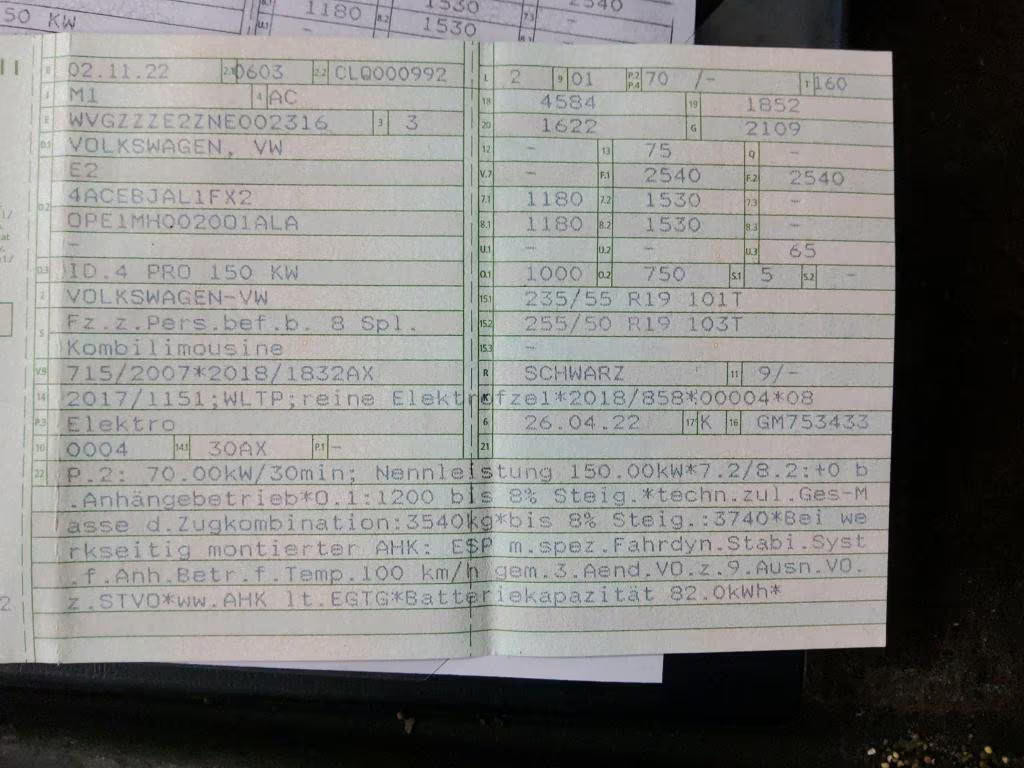 50 KW 1180 8.2 1530 2540
U.1 - 1530 7.3 -
B 02.11.22 2.1 0603 2.2 CLQ000992 L 2 9 01 P.2 P.4 70 /- T 160
J M1 4 AC 18 4584 19 1852
E WVGZZZE2ZNE002316 3 3 20 1622 G 2109
D.1 VOLKSWAGEN, VW 12 - 13 75 Q -
E2 V.7 - F.1 2540 F.2 2540
D.2 4ACEBJAL1FX2 7.1 1180 7.2 1530 7.3 -
OPE1MH002001ALA 8.1 1180 8.2 1530 8.3 -
- U.1 - U.2 - U.3 65
D.3 ID.4 PRO 150 KW O.1 1000 O.2 750 S.1 5 S.2 -
2 VOLKSWAGEN-VW 15.1 235/55 R19 101T
5 Fz.z.Pers.bef.b. 8 Spl. 15.2 255/50 R19 103T
Kombilimousine 15.3 -
V.9 715/2007*2018/1832AX R SCHWARZ 11 9/-
14 2017/1151;WLTP;reine Elektrofzel*2018/858*00004*08
P.3 Elektro 6 26.04.22 17 K 16 GM753433
10 0004 14.1 30AX P.1 - 21
22 P.2: 70.00kW/30min; Nennleistung 150.00kW*7.2/8.2:+0 b
.Anhängebetrieb*O.1:1200 bis 8% Steig.*techn.zul.Ges-M
asse d.Zugkombination:3540kg*bis 8% Steig.:3740*Bei we
rkseitig montierter AHK: ESP m.spez.Fahrdyn.Stabi.Syst
.f.Anh.Betr.f.Temp.100 km/h gem.3.Aend.VO.z.9.Ausn.VO.
z.STVO*ww.AHK lt.EGTG*Batteriekapazität 82.0kWh*